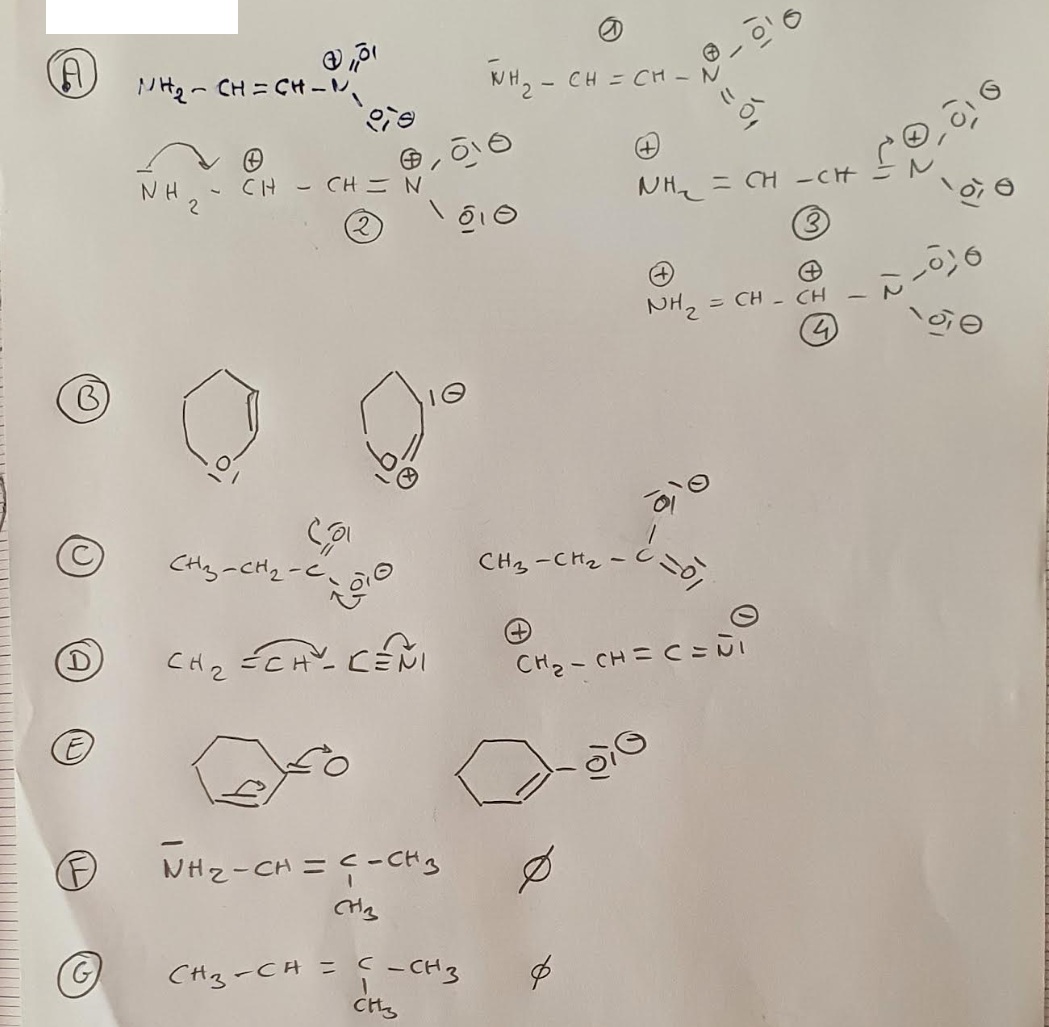 Ⓐ NH₂ – CH = CH – N⊕ = O / O⊖
① N̄H₂ – CH = CH – N⊕ – O⊖ / = O
N̄H₂ – CH⊕ – CH = N⊕ – O⊖ / O⊖ ②
⊕NH₂ = CH – CH = N⊕ – O⊖ / O⊖ ③
⊕NH₂ = CH – CH⊕ – N̄ – O⊖ / O⊖ ④
Ⓑ O O⊕ ⊖
Ⓒ CH₃–CH₂–C = O / O⊖ CH₃–CH₂–C – O⊖ / = O
Ⓓ CH₂ = CH – C≡N| ⊕CH₂ – CH = C = N̄|⊖
Ⓔ O – O⊖
Ⓕ N̄H₂ – CH = C – CH₃ ∅
CH₃
Ⓖ CH₃ – CH = C – CH₃ ∅
CH₃